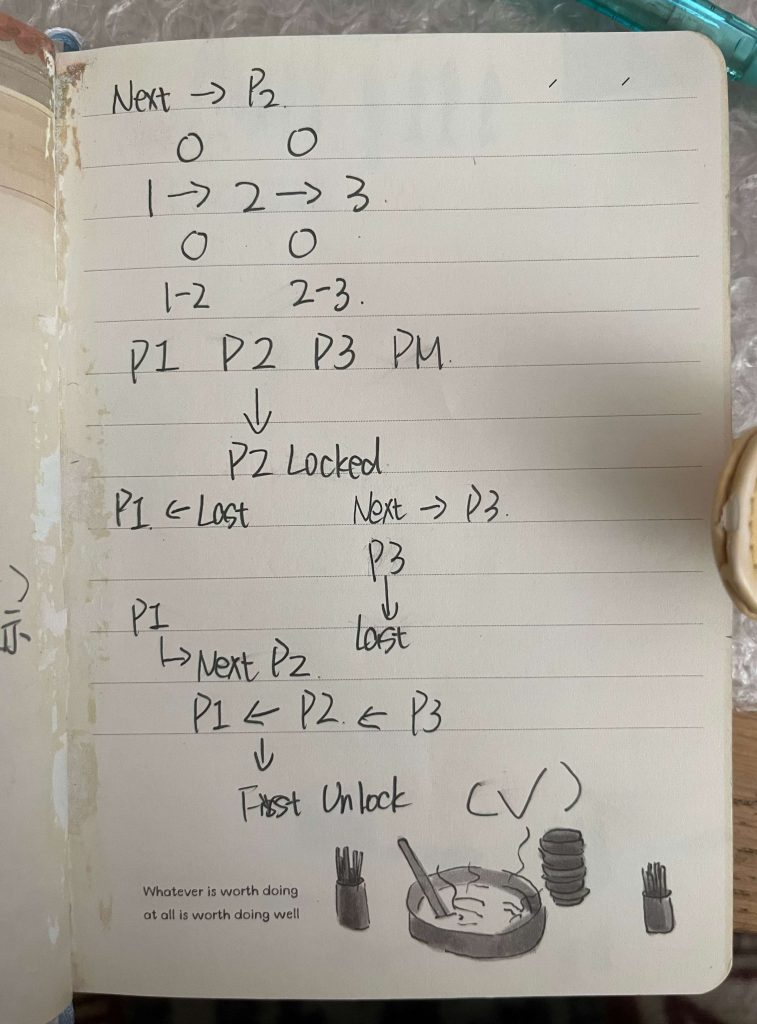 Next → P2.
O O
1 → 2 → 3.
O O
1-2 2-3.
P1 P2 P3 PM.
↓
P2 Locked
P1 ← Last Next → P3.
P3
↓
P1 Last
↳ Next P2
P1 ← P2 ← P3
↓
First Unlock (√)
Whatever is worth doing
at all is worth doing well